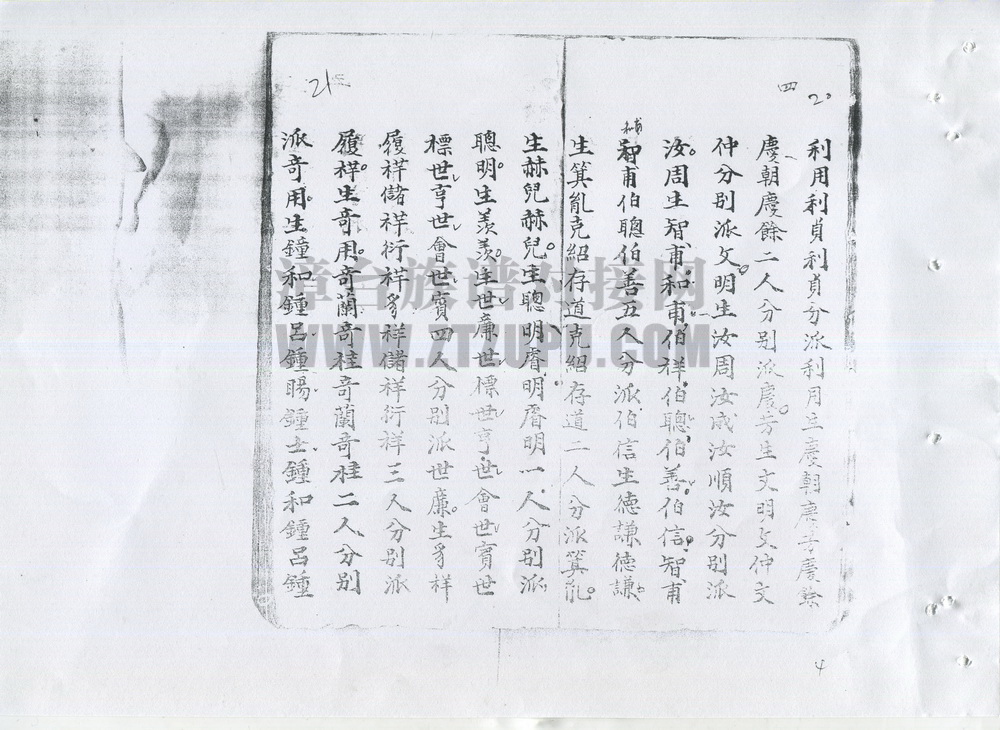 四
20
利用利貞利貞分派利用生慶朝慶芳慶餘
慶朝慶餘二人分别派慶芳生文明文仲文
仲分别派文明生汝周汝成汝順汝分别派
汝周生智甫和甫伯祥伯聰伯善伯信智甫
和甫
智甫伯聰伯善五人分派伯信生德謙德謙
生箕胤克紹存道克紹存道二人分派箕胤
生赫兒赫兒生聰明睿明睿明一人分别派
聰明生羡羡生世廉世標世亨世會世賓世
標世亨世會世賓四人分别派世廉生豸祥
履祥儲祥衍祥豸祥儲祥衍祥三人分别派
履祥生奇用奇蘭奇桂奇蘭奇桂二人分别
派奇用生鐘和鍾呂鍾暘鍾士鍾和鍾呂鍾
21
4
漳台族谱对接网
WWW.ZTZUPU.COM